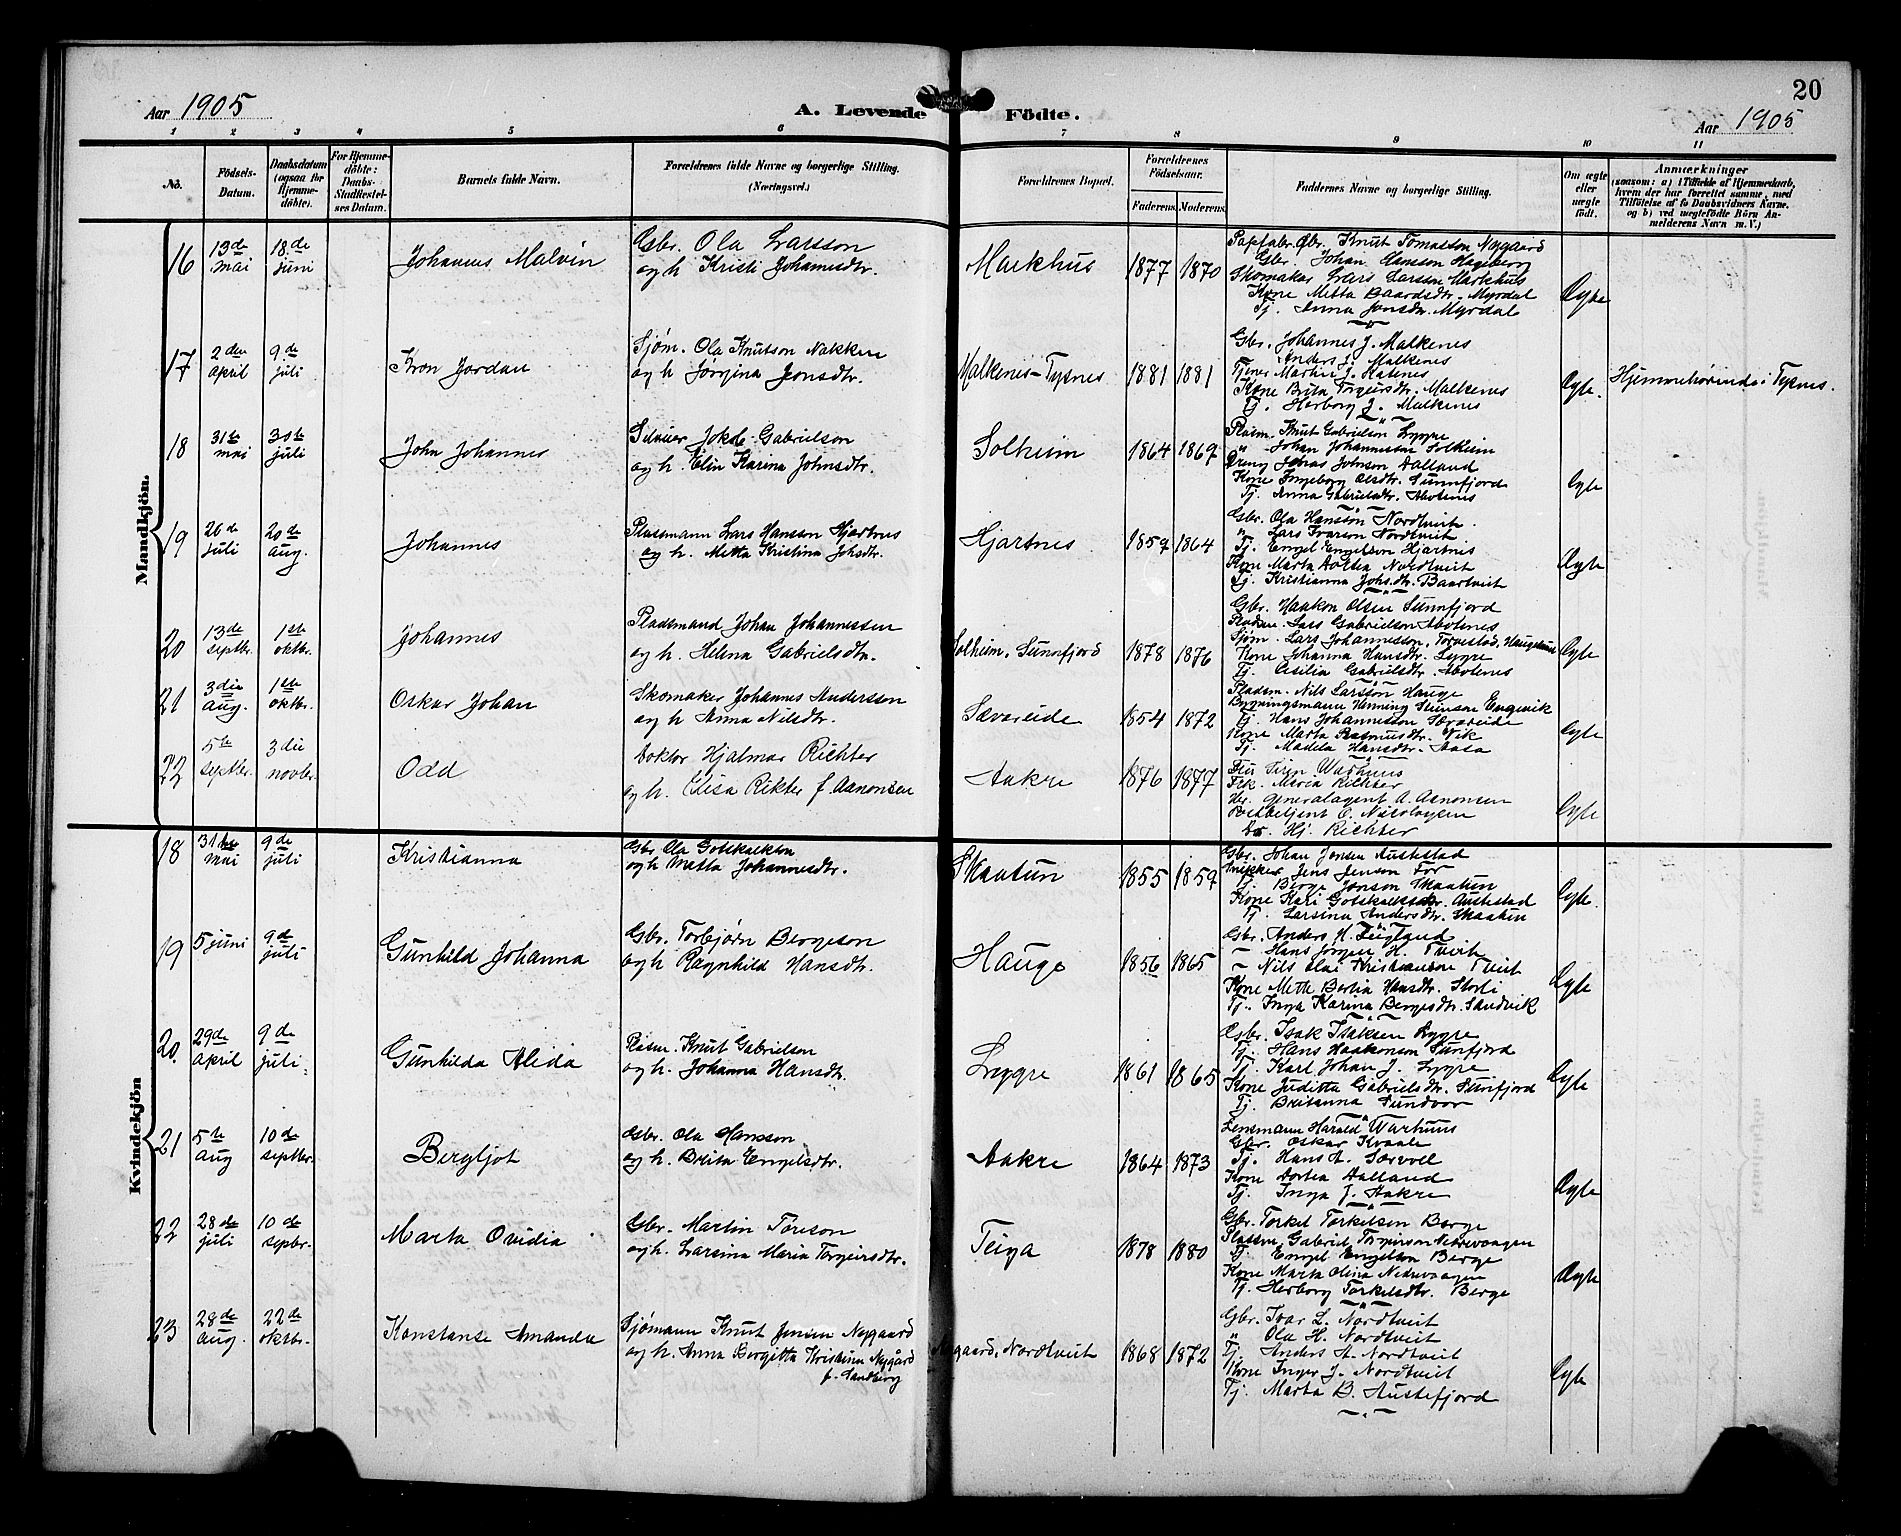 20
Aar 1905
A. Levende Födte.
Aar 1905
1 2 3 4 5 6 7 8 9 10 11
No.
Födsels-Datum.
Daabsdatum (ogsaa for Hjemme-döbte).
For Hjemme-döbte: Daabs-Stadfæstel-ses Datum.
Barnets fulde Navn.
Forældrenes fulde Navne og borgerlige Stilling.
(Næringsvei.)
Forældrenes Bopæl.
Forældrenes Födselsaar.
Faderens. Moderens.
Faddernes Navne og borgerlige Stilling.
Om ægte eller uægte födt.
Anmærkninger
(saasom: a) i Tilfælde af Hjemmedaab, hvem der har forrettet samme, med Tilföielse af to Daabsvidners Navne, og b) ved uægtefödte Börn An-melderens Navn m. V.)
Mandkjön.
16 13de mai 18.de juni Johannes Malvin
Gbr. Ola Larsson
og h. Kristi Johannesdtr.
Markhus 1877 1870
Gbr. Knut Tomasson Nygaard
Gbr. Johan Hansson Hageberg
Skomakar Lars Larsson Markhus
Kone Metta Baardsdtr. Myrdal
Tj. Anna Jonsdtr. Myrdal
Ægte
17 2den april 9de juli Kron Jordan
Sjøm. Ola Knutson Nakken
og h. Jørgina Jonsdtr.
Malkenes-Tysnes 1881 1881
Gbr. Johannes J. Malkenes
Anders J. Malkenes
Tjener Martin J.
Kone Brita Torgeirsdtr. Malkenes
Tj. Herborg J. Malkenes
Ægte. Hjemmehørende i Tysnes.
18 31te mai 30te juli John Johannes
Jokob Gabrielson
og h. Elin Karina Johnsdtr.
Solheim 1864 1869
Plasm. Knut Gabrielson Lygre
" Johan Johannessen Solheim
Dreng Johnson Dalland
Kone Ingeborg Olsdtr. Sunnfjord
Tj. Anna Gabrielsdtr. Abotenes
Ægte
19 26de juli 20de aug. Johannes
Plassmann Lars Hansson Hjartnes
og h. Metta Kristina Johsdtr.
Hjartnes 1859 1864
Gbr. Ola Hansson Nordtveit.
" Lars Ivarson Nordtveit
Tj. Engel Engelson Hjartnes
Kone Marta Dortea Nordtveit
Tj. Kristianna Johsdtr. Baartveit
Ægte
20 13de septbr. 1ste oktbr. Johannes
Pladsmand Johan Johannessen
og h. Helena Gabrielsdtr.
Solheim, Sunnfjord 1878 1876
Gbr. Haakon Olsen Sunnfjord
Lars Gabrielson Abotenes
Sjøm. Lars Johannesson, Torvestad, Haugesund
Kone Johanna Hansdtr. Lygre
Tj. Cecilia Gabrielsdtr. Abotenes
Ægte
21 3die aug. 1ste oktbr. Oskar Johan
Skomaker Johannes Andersson
og h Anna Nilsdtr.
Sævareide 1854 1872
Pladsm. Nils Larsson Hauge
Bygningsmann Henning Engevik
Tj. Hans Johannesson Sævareide
Kone Marta Rasmusdtr. Vik
Tj. Madela Hansdtr. Aasa
Ægte
22 5te septbr. 3die novbr. Odd
Doktor Hjalmar Richter
og h. Elisa Rikter f. Aanonsen
Aakre 1876 1877
Fru Siren Warhuus
Frk. Maria Richter
Hr. generalagent A. Aanonsen
Dr. Hj. Richter
Ægte
Kvindekjön
18 31te mai 9de juli Kristianna
Gbr Ola Gotskalkson
og h Metta Johannesdtr.
Skaatun 1855 1859
Gbr. Johan Jonsen Austestad
Snikker Jens Jenson
Tj. Berge Jonson Skaatun
Kone Kari Gotskalksdtr. Austestad
Tj. Larsina Andersdtr. Skaatun
Ægte.
19 5 juni 9de juli Gunhild Johanna
Gbr. Torbjørn Bergeson
og h Ragnhild Hansdtr.
Hauge 1856 1865
Gbr. Anders H. Teigland
— Hans Jørgen H. Tveit
— Nils Olai Kristianson Tveit
Kone Mette Bertia Hansdtr. Storli
Tj. Inga Karina Bergesdtr. Sandvik
Ægte
20. 29de april 9de juli. Gunhilda Alida
Plasm. Knut Gabrielson
og h. Johanna Hansdtr.
Lygre 1861 1865
Gbr. Isak Isaksen Lygre
Tj. Hans Haakonson Sunfjord
Tj. Karl Johan J. Lygre
Kone Juditta Gabrielsdtr. Sunnfjord
Tj. Britanna Sundvor
Ægte
21 5te aug 10de septbr. Bergljot
Gbr. Ola Hansson
og h. Brita Engelsdtr.
Aakre 1864 1873
Lensmann Harald Warhuus
Gbr. Oskar Kvaale
Tj. Hans A. Særvoll
Kone Dortea Dalland
Tj. Inga J. Aakre
Ægte
22 28de juli 10de sepbr. Marta Ovidia
Gbr. Martin Toreson
og h. Larsina Maria Torgeirsdtr.
Teiga 1878 1880
Gbr. Torkel Torkelsen Berge
Plassm. Gabriel Torgeirson Nedrevaagen
Tj. Engel Engelson Berge
Kone Marta Olina Nedrevaagen
Tj. Herborg Torkelsdtr. Berge
Ægte
23 28de aug. 22de oktbr. Konstanse Amanda
Sjømann Knut Jensen Nygaard
og h. Anna Bergitta Kristina Nygård
f. Sandberg
Nygaard, Nordtveit 1868 1872
Gbr. Ivar L. Nordtveit
" Ola H. Nordtveit
Tj. Anders A. Nordtveit
Kone Inger J. Nordtveit
Tj. Marta B. Austefjord
Ægte